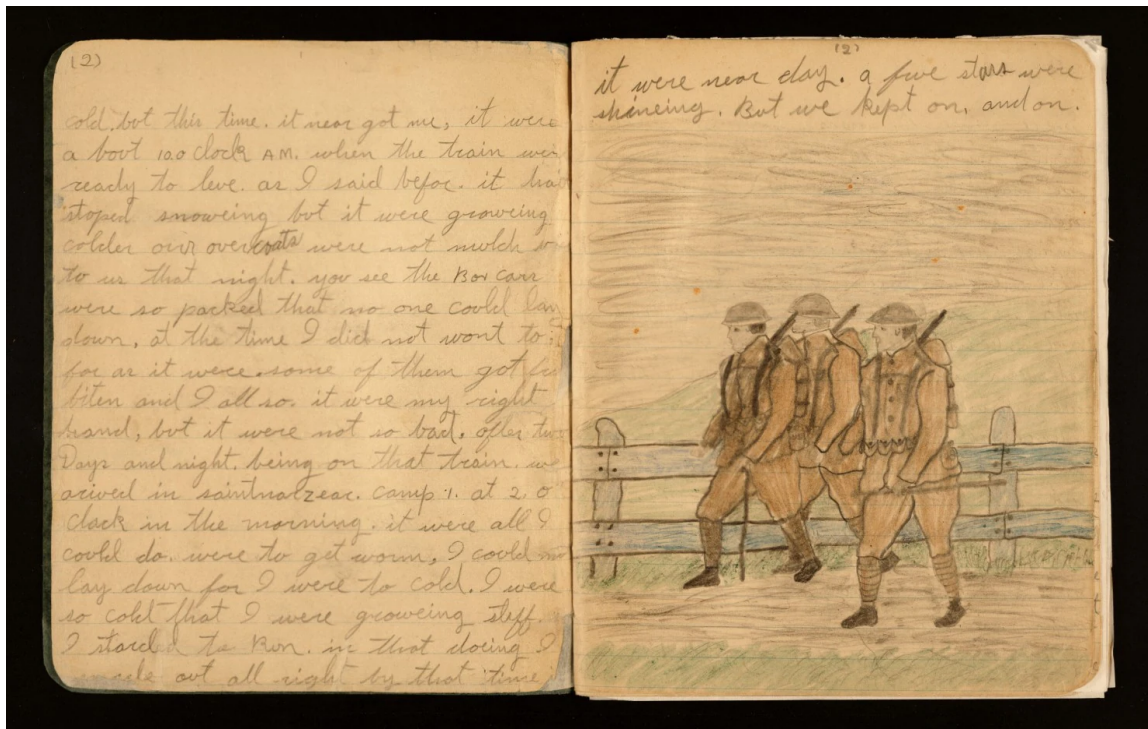 (2)
cold. but this time. it near got me, it were
a bovt 10 o clock AM. when the train
ready to leve. as I said befor. it
stoped snoweing but it were groweing
colder ovr overcoats were not mulch
to us that night. you see the Box carr
were so packed that no one covld lay
down, at the time I did not wont to.
for as it were. some of them got
biten and I all so. it were my right
hand, but it were not so bad. after two
Days and night. being on that train. we
arived in saintnalzear. camp 1. at 2 o
clock in the morning. it were all I
covld do. were to get worm, I covld
lay down for I were to cold. I were
so cold that I were groweing steff.
I started to Run. in that doeing I
ovt all right by that time
(2)
it were near day. a five stars were
shineing. But we kept on, and on.